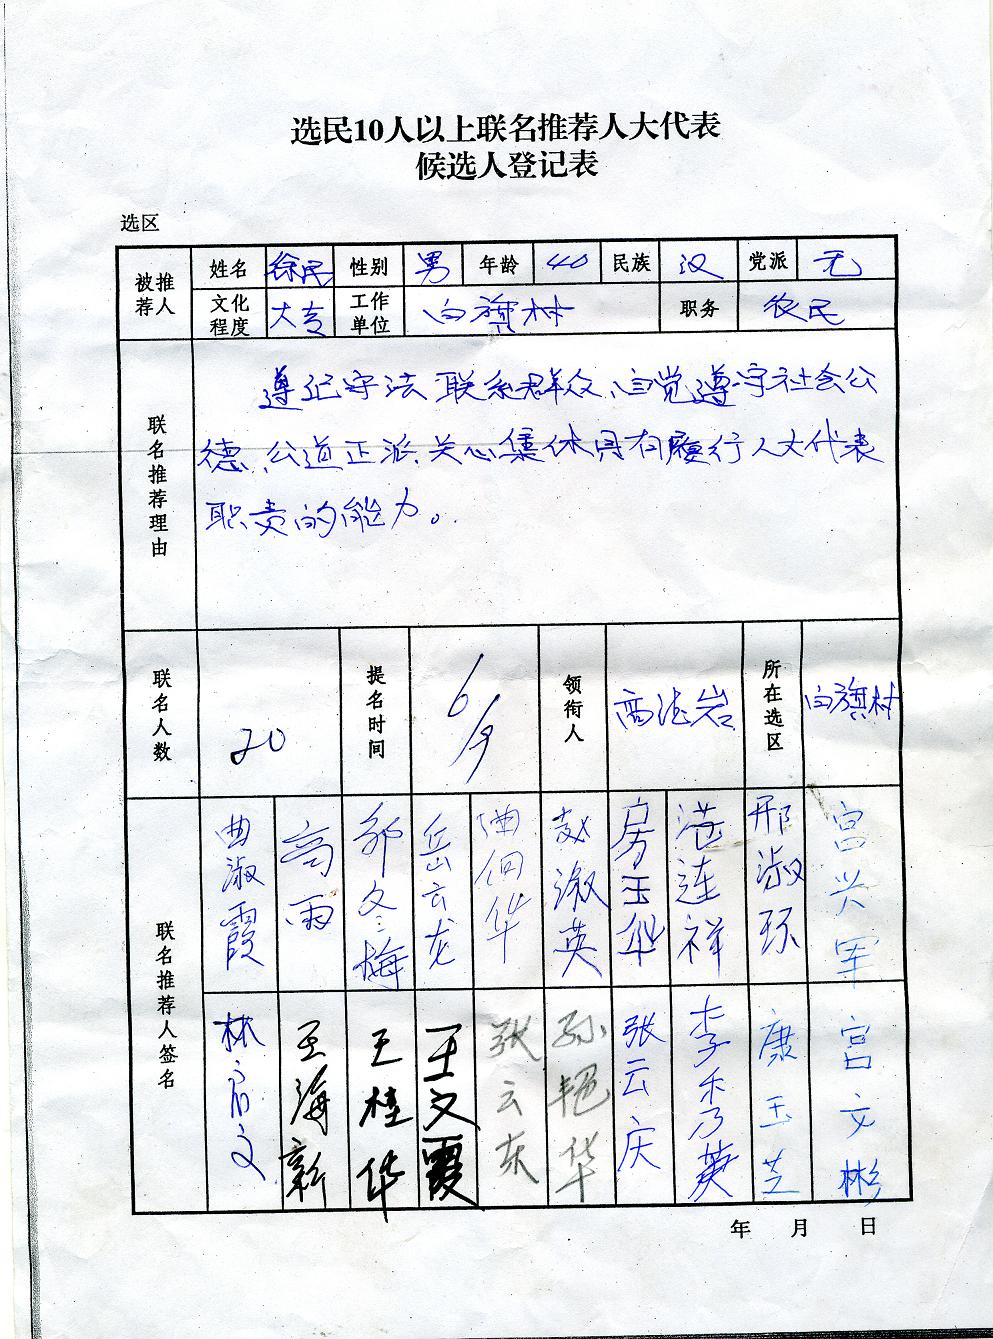 选民10人以上联名推荐人大代表
候选人登记表
选区
被推荐人 姓名 徐民 性别 男 年龄 40 民族 汉 党派 无
文化程度 大专 工作单位 白旗村 职务 农民
联名推荐理由
遵纪守法联系群众、自觉遵守社会公
德、公道正派、关心集体具有履行人大代表
职责的能力。
联名人数 20 提名时间 6/9 领衔人 高法岩 所在选区 白旗村
联名推荐人签名
曲淑霞 高雨 邹冬梅 岳云龙 赵淑英 房玉华 连祥 邢淑环 宫兴军
林启文 王海新 王桂华 王文霞 张云东 孙艳华 张云庆 李秀英 康玉芝 宫文彬
年 月 日